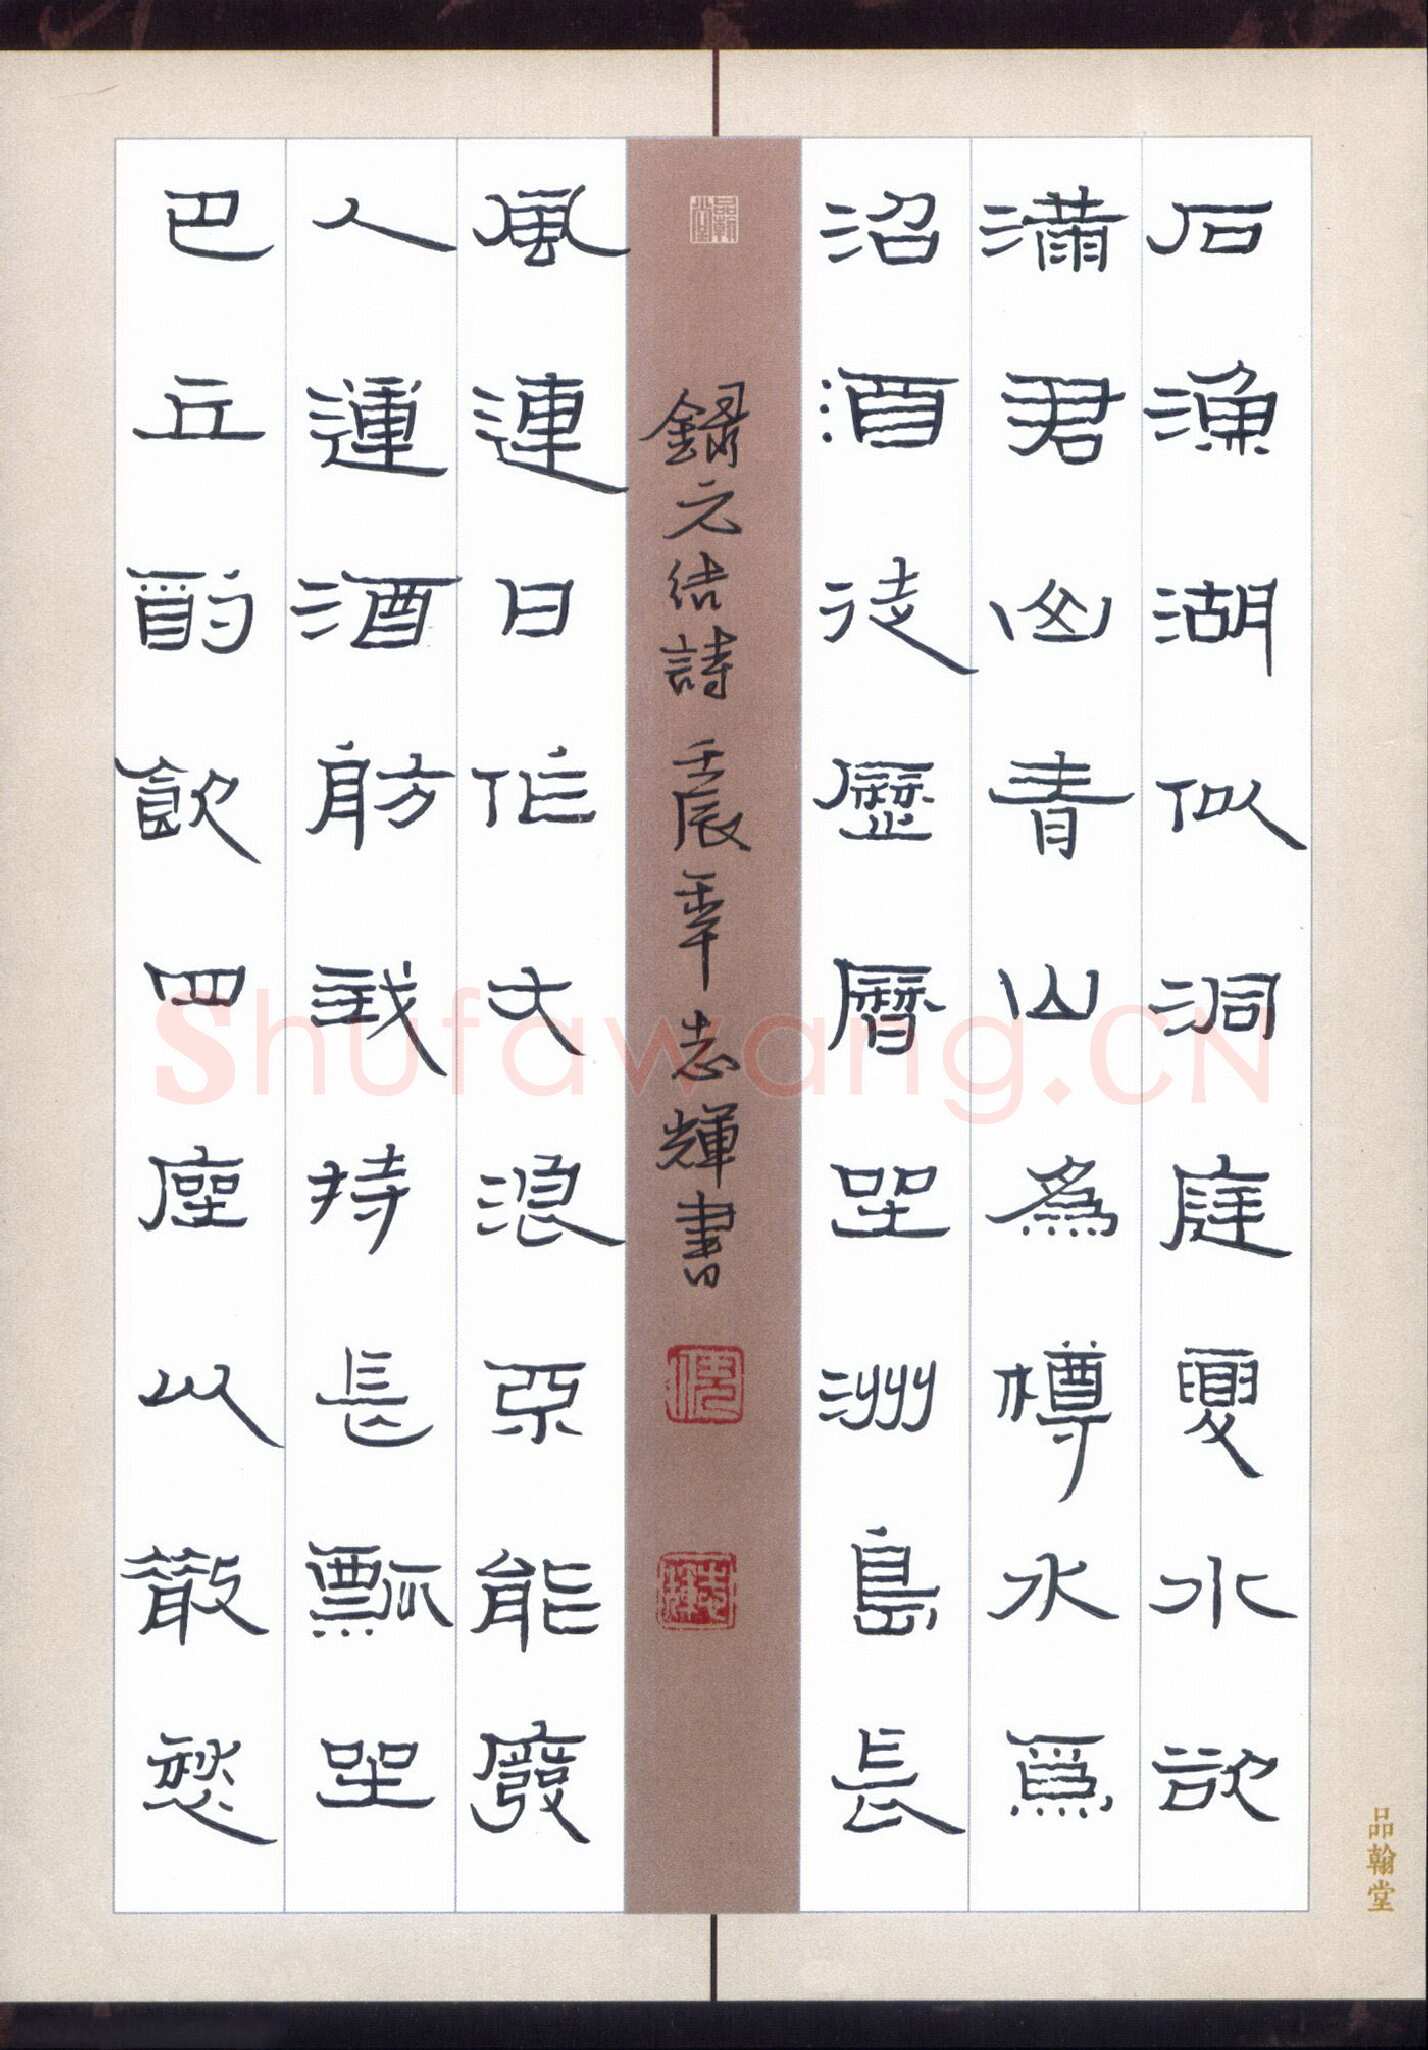 石漁湖似洞庭夏水欲
滿君山青山為樽水為
沼酒徒歷曆坐洲島長
風連日作大浪不能廢
人運酒舫我持長瓢坐
巴丘酌飲四座以散愁
錄元结詩 壬辰年志輝書
品翰堂
Shufawang.CN